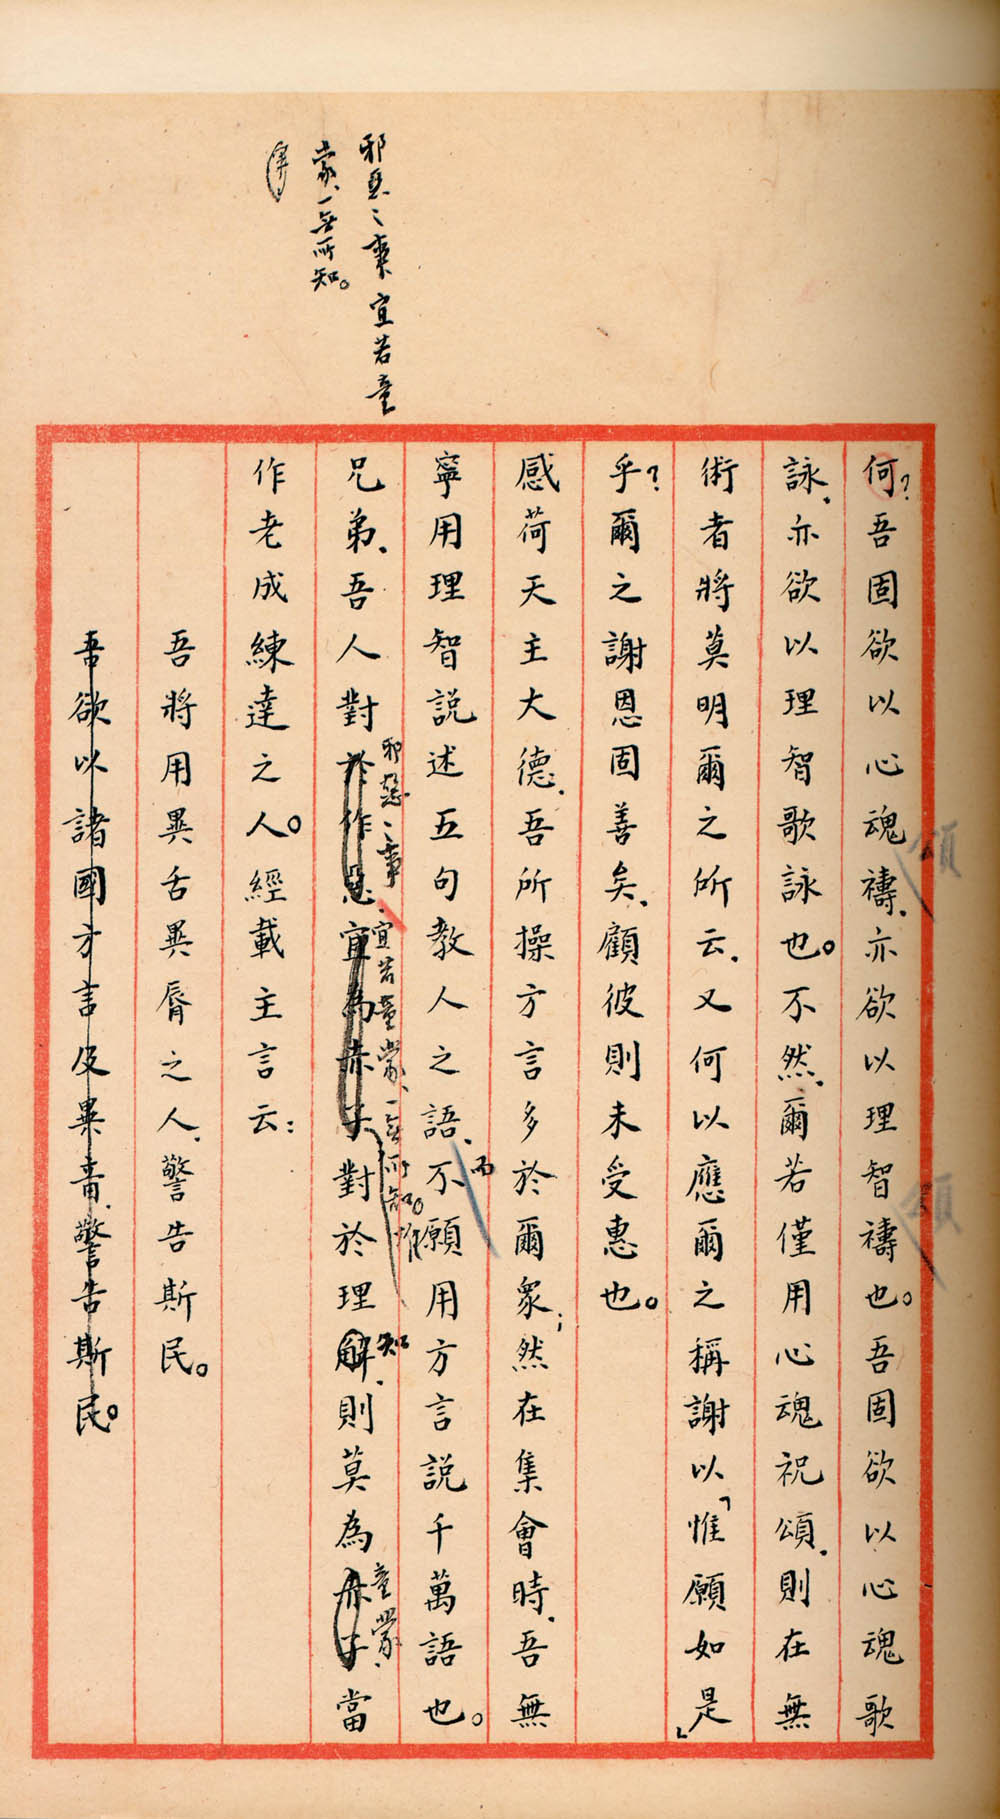 何？吾固欲以心魂禱．亦欲以理智禱也。吾固欲以心魂歌
頌
頌
詠．亦欲以理智歌詠也。不然．爾若僅用心魂祝頌．則在無
術者將莫明爾之所云．又何以應爾之稱謝以「惟願如是」
乎？爾之謝恩固善矣．顧彼則未受惠也。
感荷天主大德．吾所操方言多於爾衆；然在集會時．吾無
寧用理智說述五句教人之語．不願用方言說千萬語也。
而
邪惡〻事．宜若童蒙、一無所知。惟
兄弟．吾人對於作惡．宜為赤子對於理解．則莫為赤子當
知
童蒙．
作老成練達之人。經載主言云：
吾將用異舌異脣之人．警告斯民。
吾欲以諸國方言及異音．警告斯民。
邪惡〻事宜若童
蒙、一無所知。